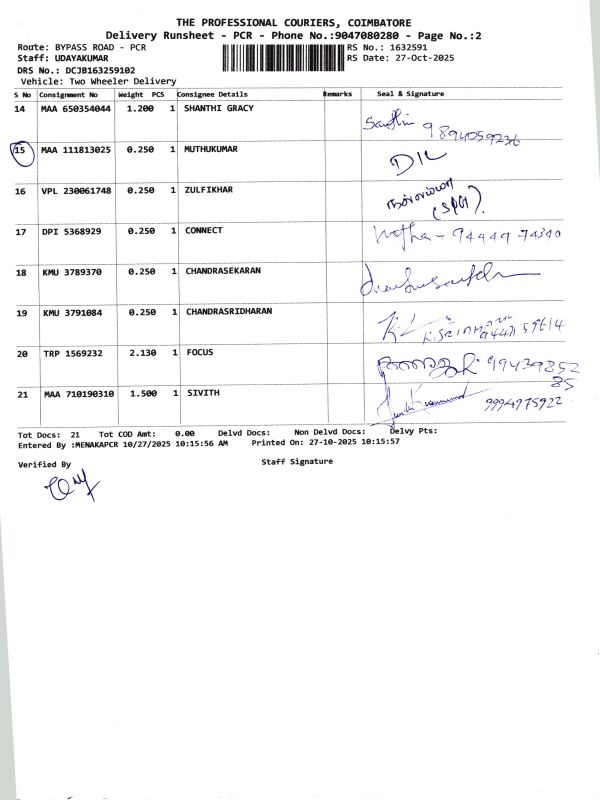 THE PROFESSIONAL COURIERS, COIMBATORE
Delivery Runsheet - PCR - Phone No.:9047080280 - Page No.:2
Route: BYPASS ROAD - PCR RS No.: 1632591
Staff: UDAYAKUMAR RS Date: 27-Oct-2025
DRS No.: DCJB163259102
Vehicle: Two Wheeler Delivery
S No Consignment No Weight PCS Consignee Details Remarks Seal & Signature
14 MAA 650354044 1.200 1 SHANTHI GRACY 9894059236
15 MAA 111813025 0.250 1 MUTHUKUMAR D/L
16 VPL 230061748 0.250 1 ZULFIKHAR
17 DPI 5368929 0.250 1 CONNECT 94449 74340
18 KMU 3789370 0.250 1 CHANDRASEKARAN
19 KMU 3791084 0.250 1 CHANDRASRIDHARAN
20 TRP 1569232 2.130 1 FOCUS 9943985285
21 MAA 710190310 1.500 1 SIVITH 9994975922
Tot Docs: 21 Tot COD Amt: 0.00 Delvd Docs: Non Delvd Docs: Delvy Pts:
Entered By :MENAKAPCR 10/27/2025 10:15:56 AM Printed On: 27-10-2025 10:15:57
Verified By Staff Signature